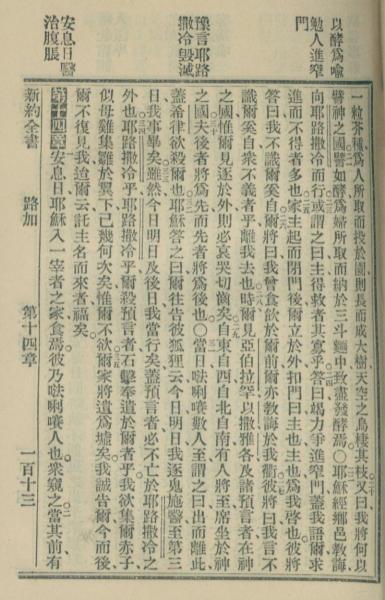 以酵爲喻
勉人進窄
門
豫言耶路
撒冷毀滅
安息日醫
治腹脹
一粒芥種爲人所取而投於園則長而成大樹天空之鳥棲其枝又曰我將何以
譬神之國譬如酵爲婦所取而納於三斗麵中致盡發酵焉○耶穌經鄉邑教誨
向耶路撒冷而行或謂之曰主得救者其寡乎答曰竭力爭進窄門蓋我語爾求
進而不得者多也家主起而閉門後爾立於外扣門曰主也主也爲我啓也彼將
答曰我不識爾奚自爾將曰我曾食飲於爾前爾亦教誨於我衢彼將曰我言不
識爾奚自衆不義者乎離我去也時爾見亞伯拉罕以撒雅各及諸預言者在神
之國惟爾見逐於外則必哀哭切齒矣自東自西自北自南有人將至席坐於神
之國夫後者將爲先而先者將爲後也○當日𠵽唎㘔數人至謂之曰出而離此
蓋希律欲殺爾也耶穌答之曰爾往告彼狐狸云今日明日我逐鬼施醫至第三
日我事畢矣雖然今日明日及後日我當行矣蓋預言者必不亡於耶路撒冷之
外也耶路撒冷乎耶路撒冷乎爾殺預言者石擊奉遣於爾者乎我欲集爾赤子
似母雞集雛於翼下已幾何次矣惟爾不欲爾家將遺爲墟矣我誠告爾今而後
爾不復見我迨爾云託主名而來者福矣
第十四章安息日耶穌入一宰者之家食焉彼乃𠵽唎㘔人也衆窺之當其前有
新約全書 路加 第十四章 一百十三